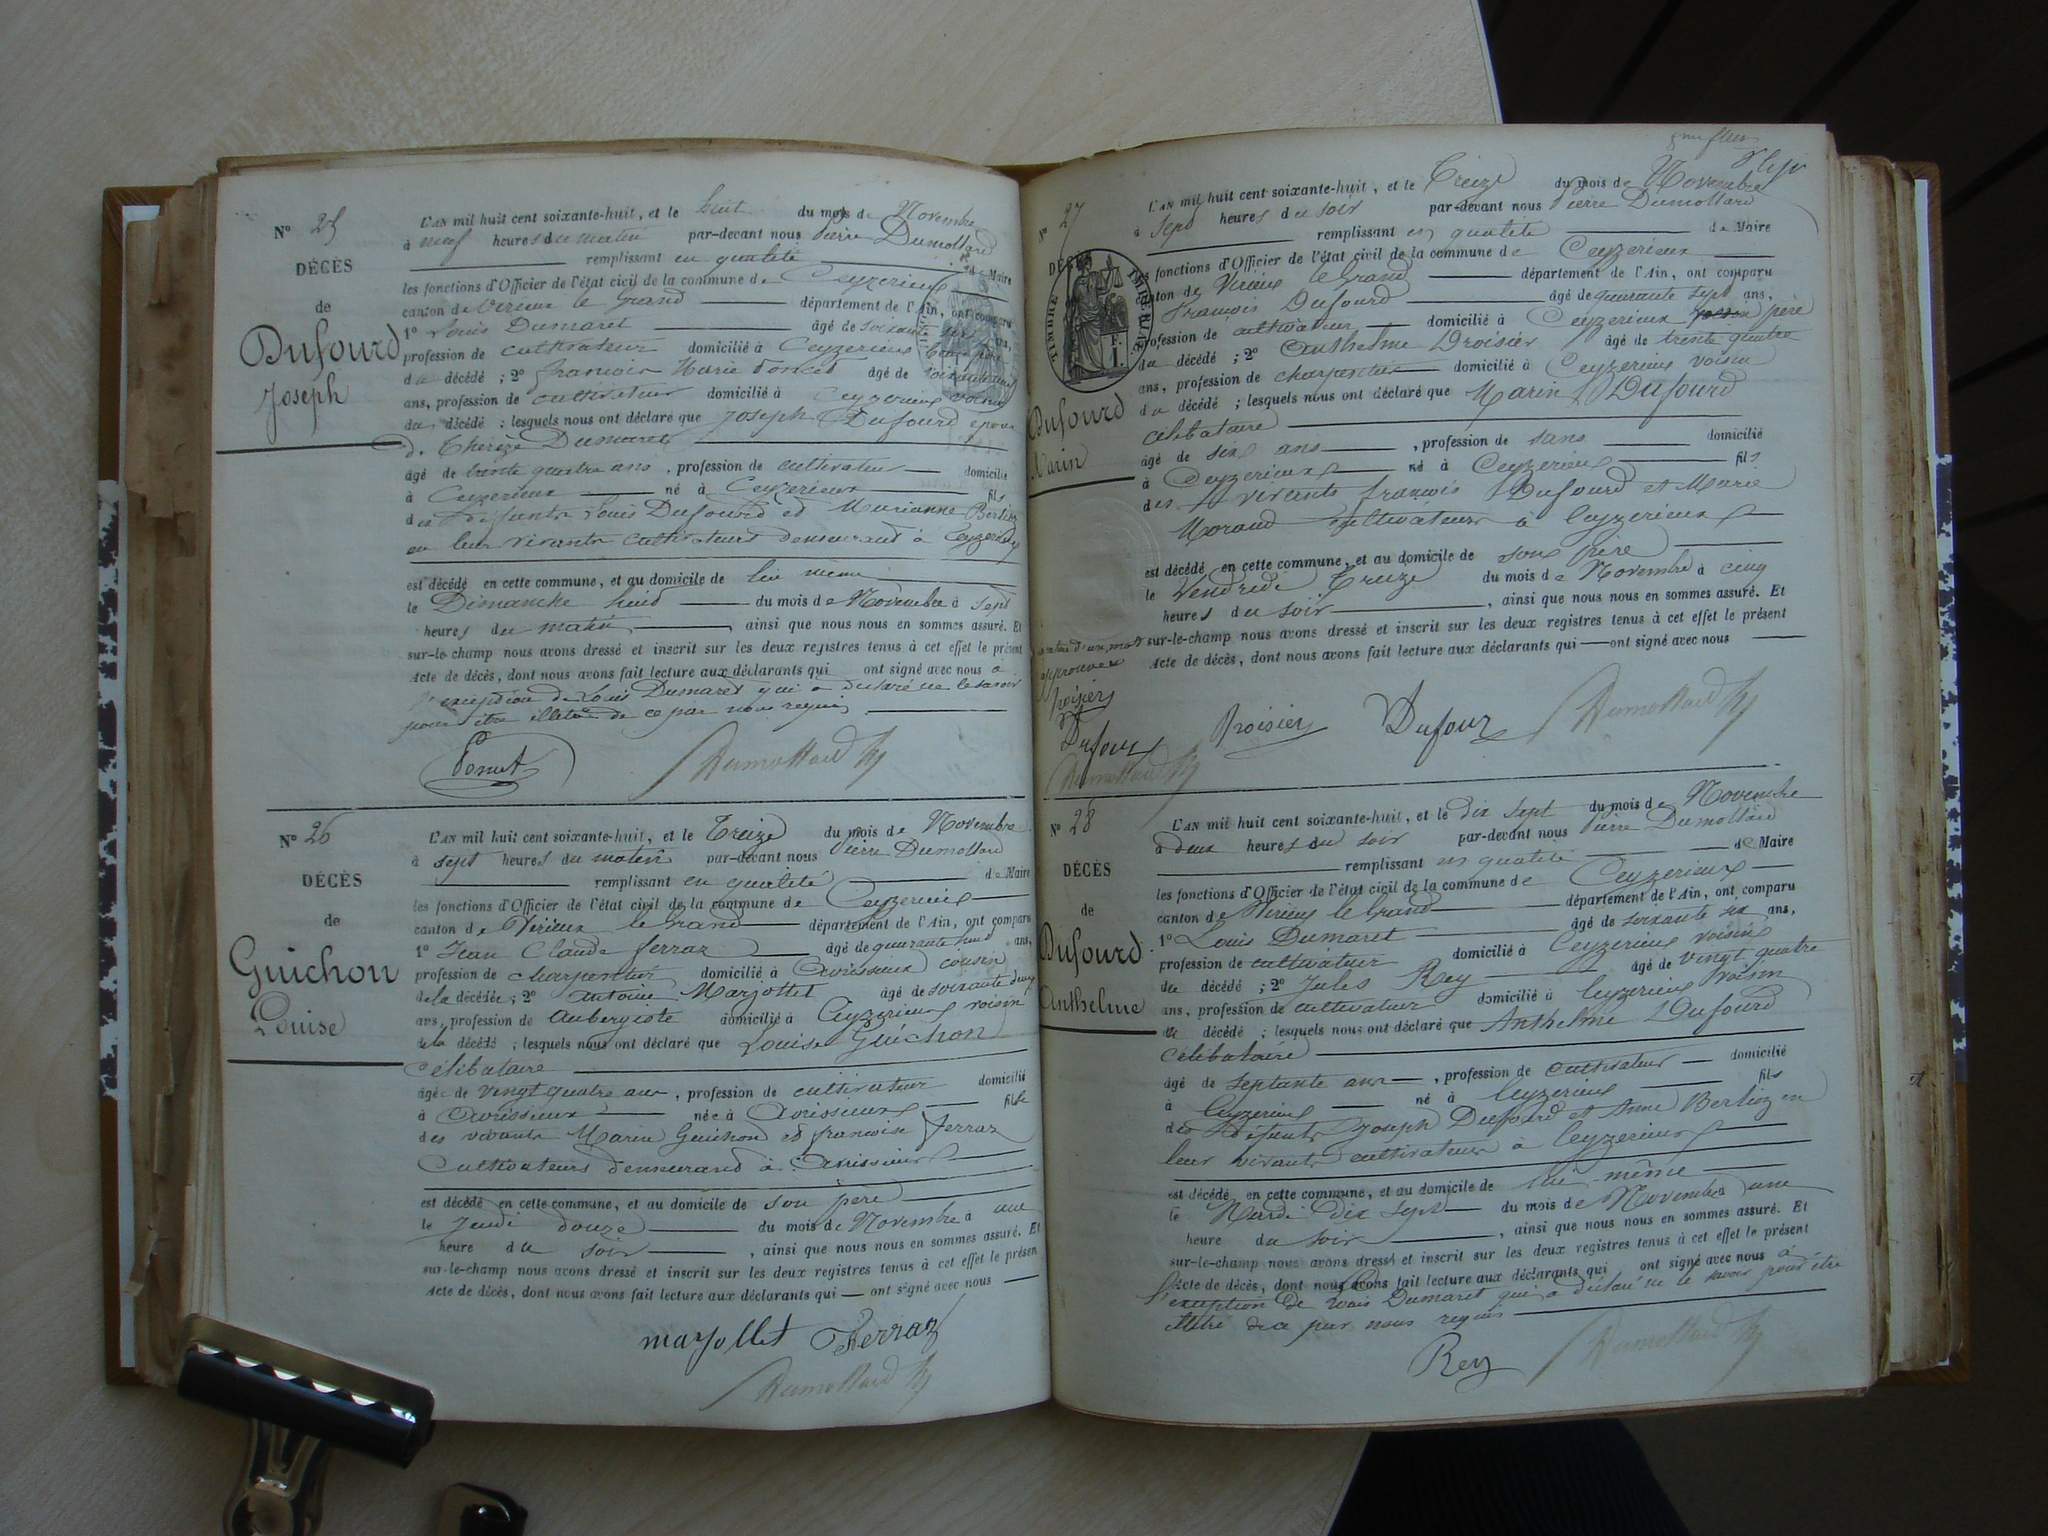 N° 25
DÉCÈS
de
Dufourd
Joseph
L'AN mil huit cent soixante-huit, et le huit du mois de Novembre
à neuf heures du matin par-devant nous Pierre Dumollard
remplissant en qualité de Maire
les fonctions d'Officier de l'état civil de la commune de Ceyzerieux
canton de Virieux le Grand département de l'Ain, ont comparu
1° Louis Dumaret âgé de soixante six ans,
profession de cultivateur domicilié à Ceyzerieux beau père
du décédé ; 2° françois Marie âgé de
ans, profession de cultivateur domicilié à Ceyzerieux voisin
du décédé ; lesquels nous ont déclaré que Joseph Dufourd époux
de Thérèze Dumaret
âgé de trente quatre ans, profession de cultivateur domicilié
à Ceyzerieux né à Ceyzerieux fils
des défunts Louis Dufourd et Marianne Berlioz
en leur vivants cultivateurs demeurand à Ceyzerieux
est décédé en cette commune, et au domicile de lui même
le Dimanche huit du mois de Novembre à sept
heures du matin, ainsi que nous nous en sommes assuré. Et
sur-le-champ nous avons dressé et inscrit sur les deux registres tenus à cet effet le présent
Acte de décès, dont nous avons fait lecture aux déclarants qui ont signé avec nous a
l'exception de Louis Dumaret qui a déclaré ne le savoir
pour être illétré de ce par nous requis
Dumollard
N° 26
DÉCÈS
de
Guichon
Louise
L'AN mil huit cent soixante-huit, et le Treize du mois de Novembre
à sept heures du matin par-devant nous Pierre Dumollard
remplissant en qualité de Maire
les fonctions d'Officier de l'état civil de la commune de Ceyzerieux
canton de Virieux le Grand département de l'Ain, ont comparu
1° Jean Claude ferraz âgé de quarante huit ans,
profession de charpentier domicilié à Avrissieux cousin
de la décédée ; 2° antoine Marjollet âgé de soixante deux
ans, profession de aubergiste domicilié à Ceyzerieux voisin
de la décédé ; lesquels nous ont déclaré que Louise Guichon
célibataire
âgée de vingt quatre ans, profession de cultivateur domicilié
à Avrissieux née à Avrissieux fille
des vivants Marin Guichon et françoise ferraz
Cultivateurs demeurand à Avrissieux
est décédé en cette commune, et au domicile de son père
le Jeudi douze du mois de Novembre à une
heure du soir, ainsi que nous nous en sommes assuré. Et
sur-le-champ nous avons dressé et inscrit sur les deux registres tenus à cet effet le présent
Acte de décès, dont nous avons fait lecture aux déclarants qui — ont signé avec nous
marjollet Ferraz
Dumollard
N° 27
DÉCÈS
TIMBRE IMPÉRIAL
Dufourd
Marin
L'AN mil huit cent soixante-huit, et le Treize du mois de Novembre
à sept heures du soir par-devant nous Pierre Dumollard
remplissant en qualité de Maire
les fonctions d'Officier de l'état civil de la commune de Ceyzerieux
canton de Virieux le Grand département de l'Ain, ont comparu
François Dufourd âgé de quarante sept ans,
profession de cultivateur domicilié à Ceyzerieux père
du décédé ; 2° Anthelme Droisier âgé de trente quatre
ans, profession de charpentier domicilié à Ceyzerieux voisin
du décédé ; lesquels nous ont déclaré que Marin Dufourd
célibataire
âgé de six ans, profession de sans domicilié
à Ceyzerieux né à Ceyzerieux fils
des vivants françois Dufourd et Marie
Morand cultivateurs à Ceyzerieux
est décédé en cette commune, et au domicile de son père
le Vendredi Treize du mois de Novembre à cinq
heures du soir, ainsi que nous nous en sommes assuré. Et
sur-le-champ nous avons dressé et inscrit sur les deux registres tenus à cet effet le présent
Acte de décès, dont nous avons fait lecture aux déclarants qui — ont signé avec nous
d'un mot
approuvée
Dufour
Dumollard
Droisier Dufour Dumollard
N° 28
DÉCÈS
de
Dufourd
Anthelme
L'AN mil huit cent soixante-huit, et le dix sept du mois de Novembre
à deux heures du soir par-devant nous Pierre Dumollard
remplissant en qualité de Maire
les fonctions d'Officier de l'état civil de la commune de Ceyzerieux
canton de Virieux le Grand département de l'Ain, ont comparu
1° Louis Dumaret âgé de soixante six ans,
profession de cultivateur domicilié à Ceyzerieux voisin
du décédé ; 2° Jules Rey âgé de vingt quatre
ans, profession de cultivateur domicilié à Ceyzerieux voisin
du décédé ; lesquels nous ont déclaré que Anthelme Dufourd
célibataire
âgé de septante ans, profession de cultivateur domicilié
à Ceyzerieux né à Ceyzerieux fils
des défunts Joseph Dufourd et Anne Berlioz en
leur vivants cultivateurs à Ceyzerieux
est décédé en cette commune, et au domicile de lui-même
le Mardi dix sept du mois de Novembre à une
heure du soir, ainsi que nous nous en sommes assuré. Et
sur-le-champ nous avons dressé et inscrit sur les deux registres tenus à cet effet le présent
Acte de décès, dont nous avons fait lecture aux déclarants qui ont signé avec nous à
l'exception de Louis Dumaret qui a déclaré ne le savoir pour être
illétré de ce par nous requis
Rey Dumollard